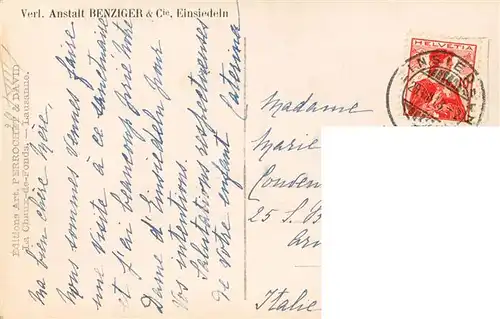 Verl. Anstalt BENZIGER & Cie, Einsiedeln
Editions Art. PERROCHET & DAVID
La Chaux-de-Fonds. — Lausanne.
Ma bien chère Mère,
Nous sommes venues faire
une visite à ce sanctuaire
et j'ai beaucoup prié Notre
Dame d'Einsiedeln pour
vos intentions.
Salutations respectueuses
de votre enfant Caterina
HELVETIA
Madame
Marie
25 S.
Italie